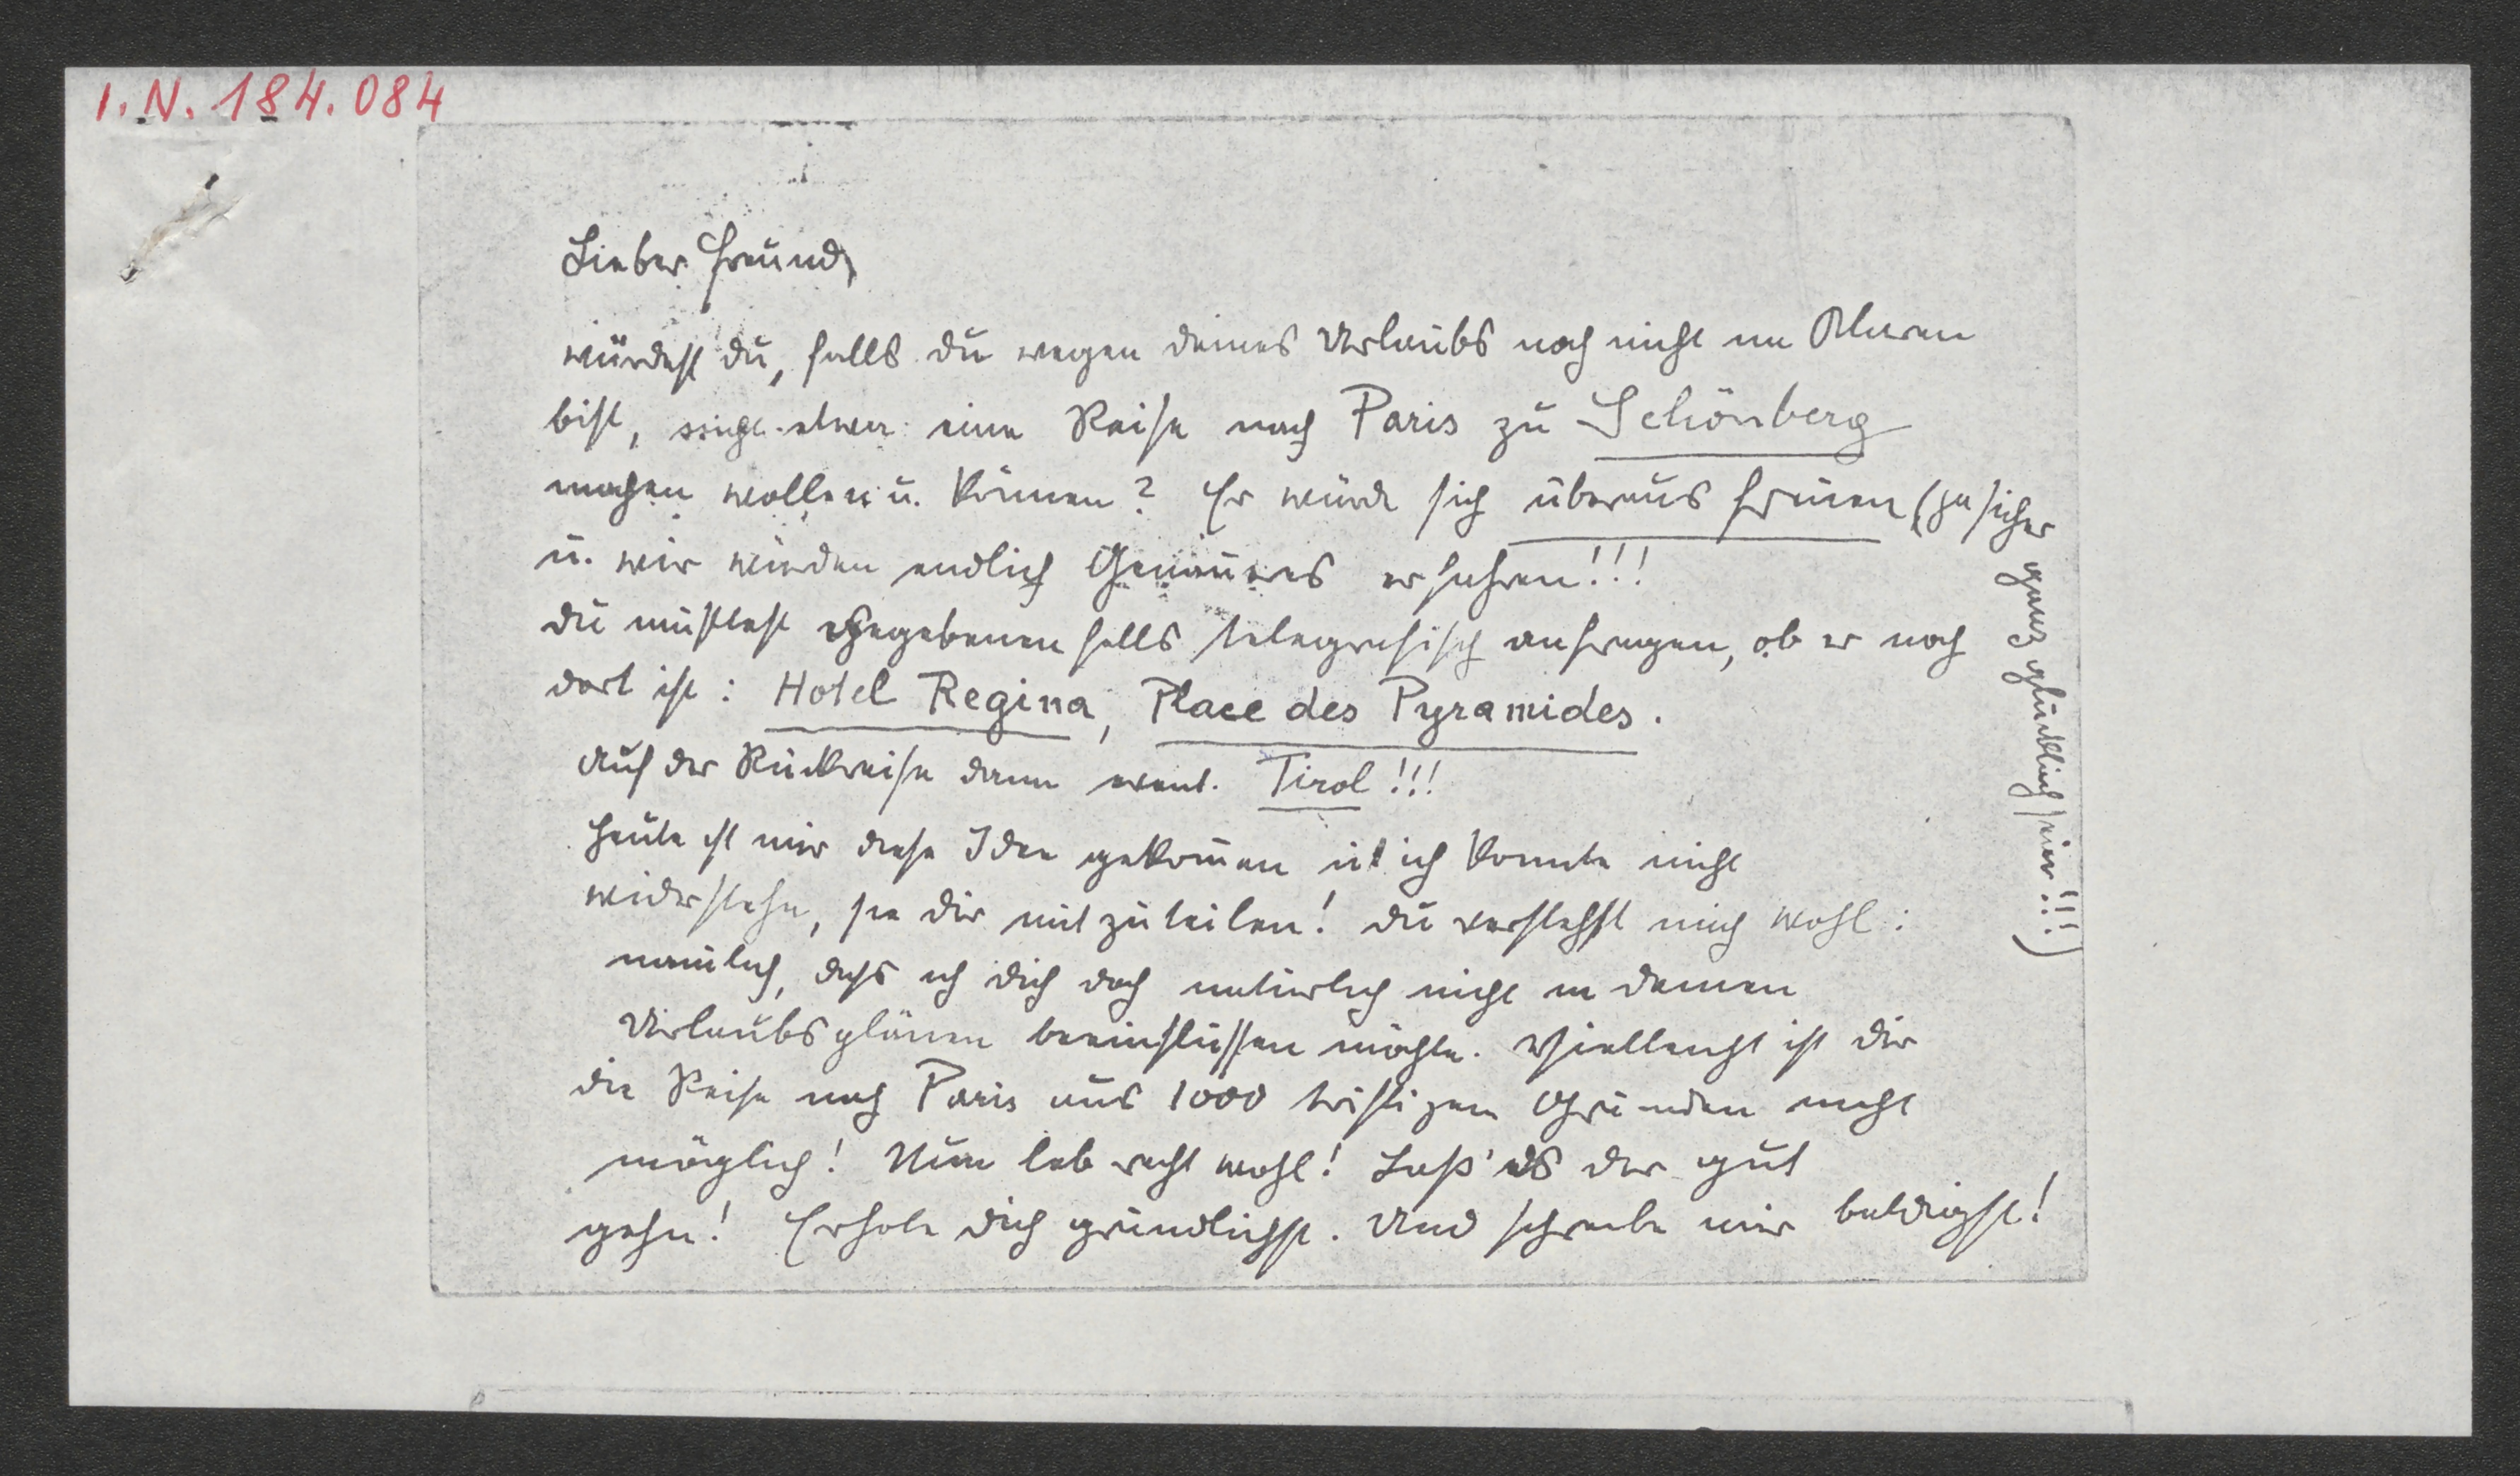 I.N. 184.084
Lieber Freund,
würdest du, falls du wegen deines Urlaubs noch nicht im Klaren
bist, nicht etwa eine Reise nach Paris zu Schönberg
machen wollen u. können? Er würde sich überaus freuen (ja sicher
ganz glücklich sein!!!)
u. wir würden endlich Genaueres erfahren!!!
Du müsstest gegebenenfalls telegrafisch anfragen, ob er noch
dort ist: Hotel Regina, Place des Pyramides.
Auf der Rückreise dann event. Tirol!!!
Heute ist mir diese Idee gekommen u. ich konnte nicht
widerstehn, sie dir mitzuteilen! Du verstehst mich wohl:
nämlich, dass ich dich doch natürlich nicht in deinen
Urlaubsplänen beeinflussen möchte. Vielleicht ist dir
die Reise nach Paris aus 1000 triftigen Gründen nicht
möglich! Nun leb recht wohl! Laß' es dir gut
gehn! Erhole dich gründlichst. Und schreibe mir baldigst!